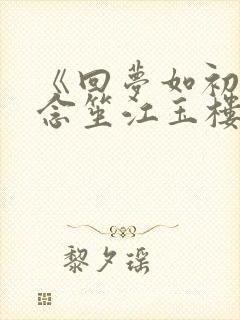 《回夢如初
念笙江玉樓
黎夕瑶